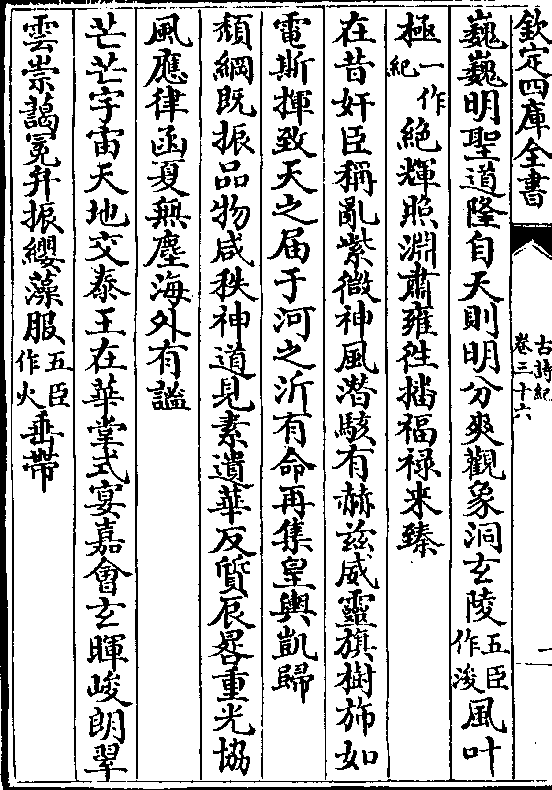 欽定四庫全書
古詩紀
卷三十六
一
巍巍明聖道隆自天則明分爽觀象洞玄陵五臣作浚風叶
極一作紀絶輝照淵肅雍徃播福禄来臻
在昔奸臣稱亂紫微神風潜駭有赫兹威靈旗樹斾如
電斯揮致天之届于河之沂有命再集皇輿凱歸
頽綱既振品物咸秩神道見素遺華反質辰晷重光協
風應律函夏無塵海外有謐
芒芒宇宙天地交泰王在華堂式宴嘉會玄暉峻朗翠
雲崇藹冕弁振纓藻服五臣作火垂帶